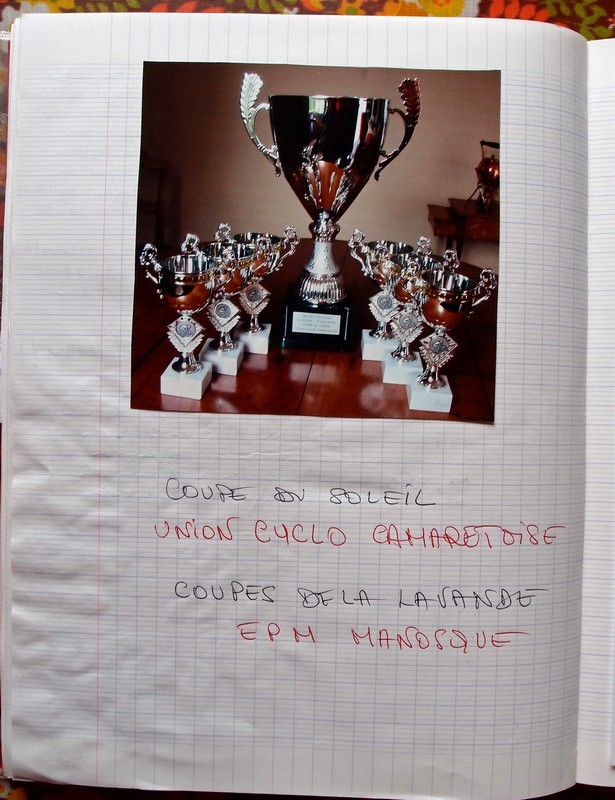 COUPE DU SOLEIL
UNION CYCLO CAMARETOISE
COUPES DE LA LAVANDE
EPM MANOSQUE